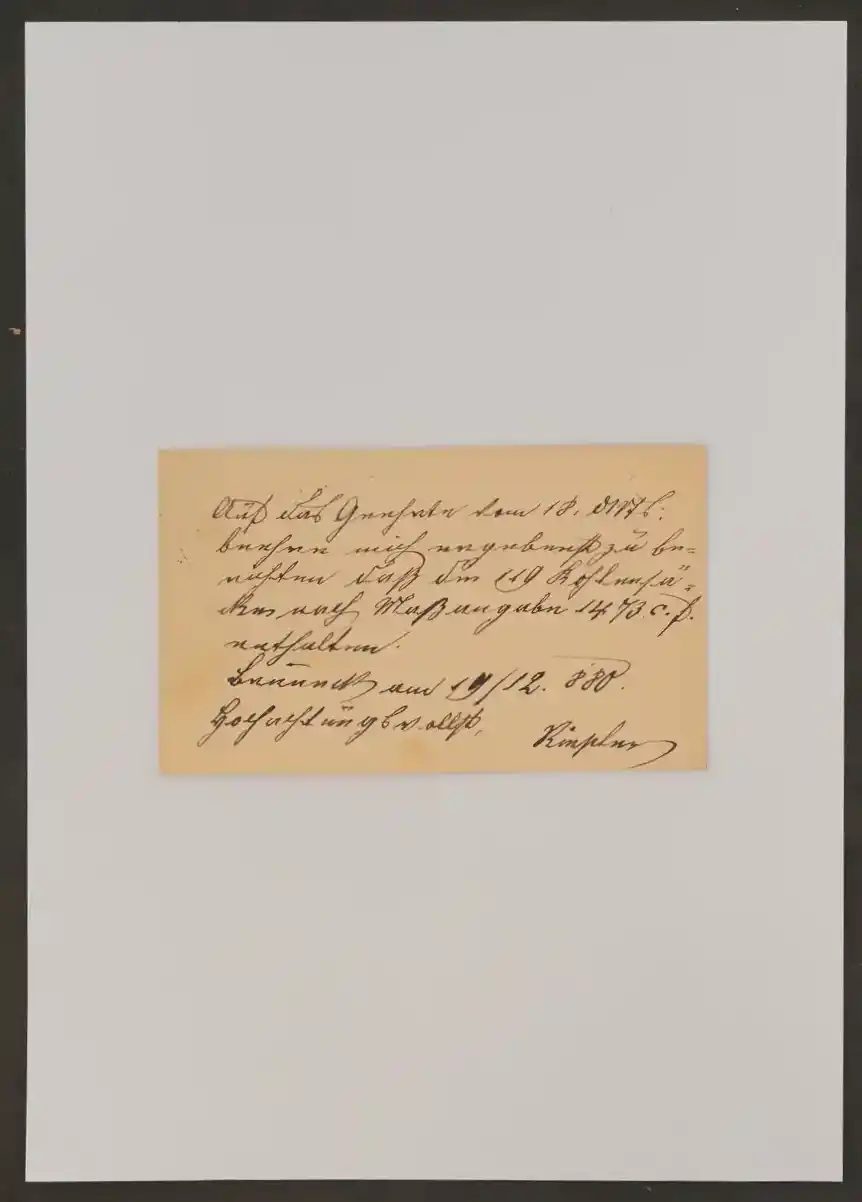 Auf das Geehrte vom 18. dMts:
beehre mich ergebenst zu be-
richten daß die 119 Kohlensä-
cke nach Maßangabe 1473 c. f.
enthalten.
Bruneck am 19/12. 880.
Hochachtungsvollst,